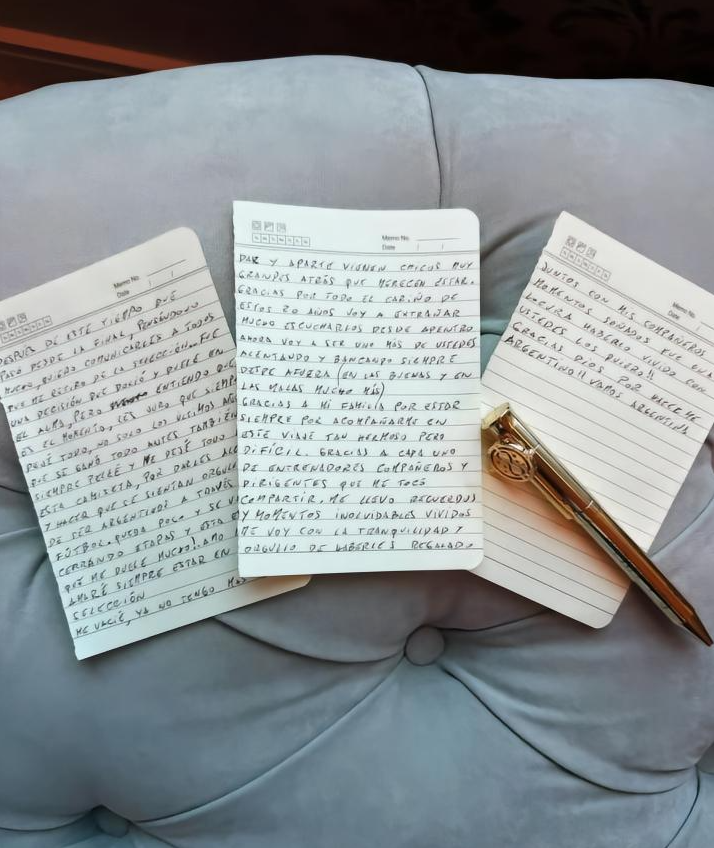 Memo No.
Date / /
DESPUES DE ESTE TIEMPO QUE
PASO DESDE LA FINAL, PENSÁNDOLO
MUCHO, QUIERO COMUNICARLES A TODOS
QUE ME RETIRO DE LA SELECCIÓN. FUE
UNA DECISIÓN QUE DOLIÓ Y DUELE EN
EL ALMA, PERO ENTIENDO QUE
ES EL MOMENTO, LES JURO QUE SIEMPRE
DEJÉ TODO, NO SOLO LOS ULTIMOS AÑOS
QUE SE GANÓ TODO ANTES TAMBIÉN
SIEMPRE PELEÉ Y ME DEJÉ TODO
ESTA CAMISETA, POR DARLES ALE
Y HACER QUE SE SIENTAN ORGULL
DE SER ARGENTINOS A TRAVÉS
FÚTBOL. QUEDA POCO Y SE VA
CERRANDO ETAPAS Y ESTA
QUE ME DUELE MUCHO. AMO
AMARÉ SIEMPRE ESTAR EN
SELECCIÓN
ME VACIÉ, YA NO TENGO MÁS
Memo No.
Date / /
DAR Y APARTE VIENEN CHICOS MUY
GRANDES ATRÁS QUE MERECEN ESTAR.
GRACIAS POR TODO EL CARIÑO DE
ESTOS 20 AÑOS VOY A EXTRAÑAR
MUCHO ESCUCHARLOS DESDE ADENTRO
AHORA VOY A SER UNO MÁS DE USTEDES
ALENTANDO Y BANCANDO SIEMPRE
DESDE AFUERA (EN LAS BUENAS Y EN
LAS MALAS MUCHO MÁS)
GRACIAS A MI FAMILIA POR ESTAR
SIEMPRE POR ACOMPAÑARME EN
ESTE VIAJE TAN HERMOSO PERO
DIFÍCIL. GRACIAS A CADA UNO
DE ENTRENADORES COMPAÑEROS Y
DIRIGENTES QUE ME TOCÓ
COMPARTIR, ME LLEVO RECUERDOS
Y MOMENTOS INOLVIDABLES VIVIDOS
ME VOY CON LA TRANQUILIDAD Y
ORGULLO DE HABERLES REGALADO
Memo No.
Date / /
JUNTOS CON MIS COMPAÑEROS
MOMENTOS SOÑADOS FUE UNA
LOCURA HABERLO VIVIDO CON
USTEDES LOS QUIERO!!
GRACIAS DIOS POR HACERME
ARGENTINO!! VAMOS ARGENTINA